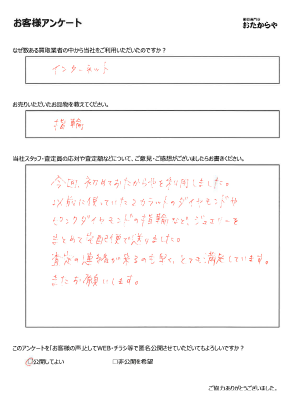 お客様アンケート
買取専門店
おたからや
なぜ数ある買取業者の中から当社をご利用いただいたのですか？
インターネット
お売りいただいたお品物を教えてください。
指輪
当社スタッフ・査定員の応対や査定額などについて、ご意見・ご感想がございましたらお書きください。
今回、初めておたからやを利用しました。
以前に使っていた2カラットのダイヤモンドや
ピンクダイヤモンドの指輪など、ジュエリーを
まとめて宅配便で送りました。
査定の連絡が来るのも早く、とても満足しています。
またお願いします。
このアンケートを「お客様の声」としてWEB・チラシ等で匿名公開させていただいてもよろしいですか？
公開してよい
□非公開を希望
ご協力ありがとうございました。